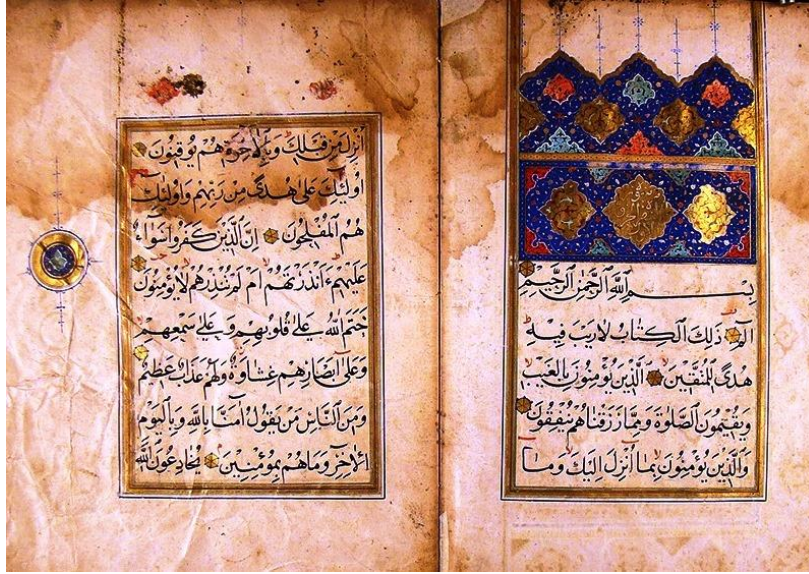 بِسْمِ اللَّهِ الرَّحْمَٰنِ الرَّحِيمِ
الٓمٓ ذَٰلِكَ الْكِتَابُ لَا رَيْبَ فِيهِ
هُدًى لِلْمُتَّقِينَ الَّذِينَ يُؤْمِنُونَ بِالْغَيْبِ
وَيُقِيمُونَ الصَّلَوٰةَ وَمِمَّا رَزَقْنَاهُمْ يُنْفِقُونَ
وَالَّذِينَ يُؤْمِنُونَ بِمَا أُنْزِلَ إِلَيْكَ وَمَا
أُنْزِلَ مِنْ قَبْلِكَ وَبِالْآخِرَةِ هُمْ يُوقِنُونَ
أُولَٰئِكَ عَلَىٰ هُدًى مِنْ رَبِّهِمْ وَأُولَٰئِكَ
هُمُ الْمُفْلِحُونَ إِنَّ الَّذِينَ كَفَرُوا سَوَاءٌ
عَلَيْهِمْ ءَأَنْذَرْتَهُمْ أَمْ لَمْ تُنْذِرْهُمْ لَا يُؤْمِنُونَ
خَتَمَ اللَّهُ عَلَىٰ قُلُوبِهِمْ وَعَلَىٰ سَمْعِهِمْ
وَعَلَىٰ أَبْصَارِهِمْ غِشَاوَةٌ وَلَهُمْ عَذَابٌ عَظِيمٌ
وَمِنَ النَّاسِ مَنْ يَقُولُ آمَنَّا بِاللَّهِ وَبِالْيَوْمِ
الْآخِرِ وَمَا هُمْ بِمُؤْمِنِينَ يُخَادِعُونَ اللَّهَ